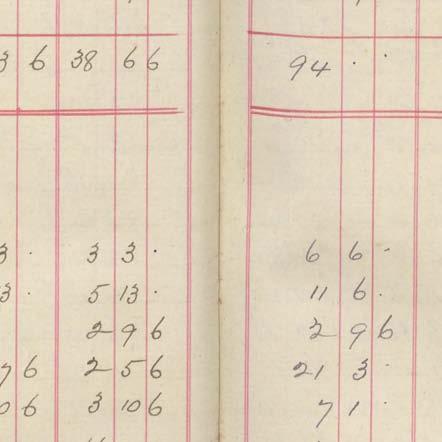 3 6 38 6 6 94 · ·
3 · 3 3 · 6 6 ·
3 · 5 13 · 11 6 ·
2 9 6 2 9 6
7 6 2 5 6 21 3 ·
0 6 3 10 6 7 1 ·